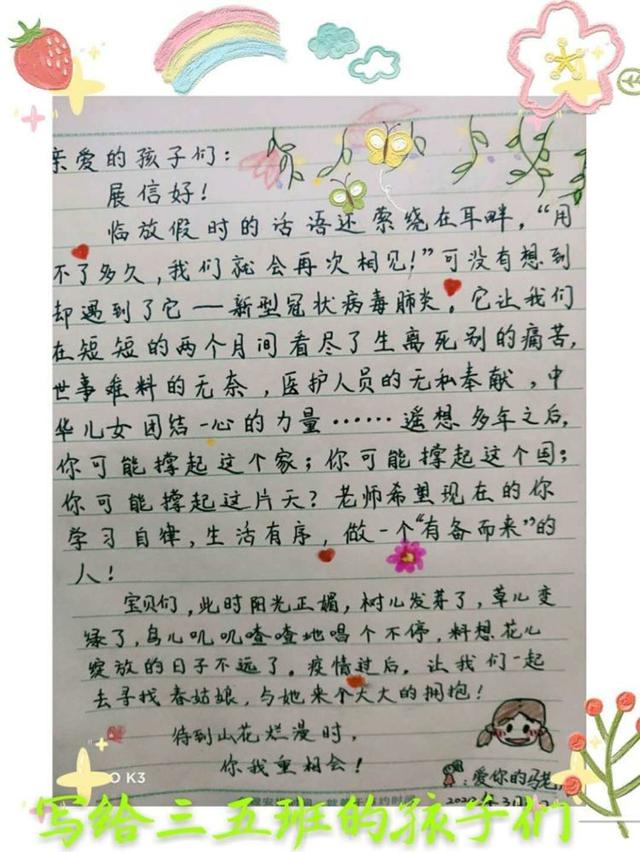 亲爱的孩子们：
展信好！
临放假时的话语还萦绕在耳畔，“用
不了多久，我们就会再次相见！”可没有想到
却遇到了它——新型冠状病毒肺炎。它让我们
在短短的两个月间看尽了生离死别的痛苦，
世事难料的无奈，医护人员的无私奉献，中
华儿女团结一心的力量……遥想多年之后，
你可能撑起这个家；你可能撑起这个国；
你可能撑起这片天？老师希望现在的你
学习自律，生活有序，做一个“有备而来”的
人！
宝贝们，此时阳光正媚，树儿发芽了，草儿变
绿了，鸟儿叽叽喳喳地唱个不停，料想花儿
绽放的日子不远了。疫情过后，让我们一起
去寻找春姑娘，与她来个大大的拥抱！
待到山花烂漫时，
你我重相会！
O K3
：爱你的马老
写给三五班的孩子们